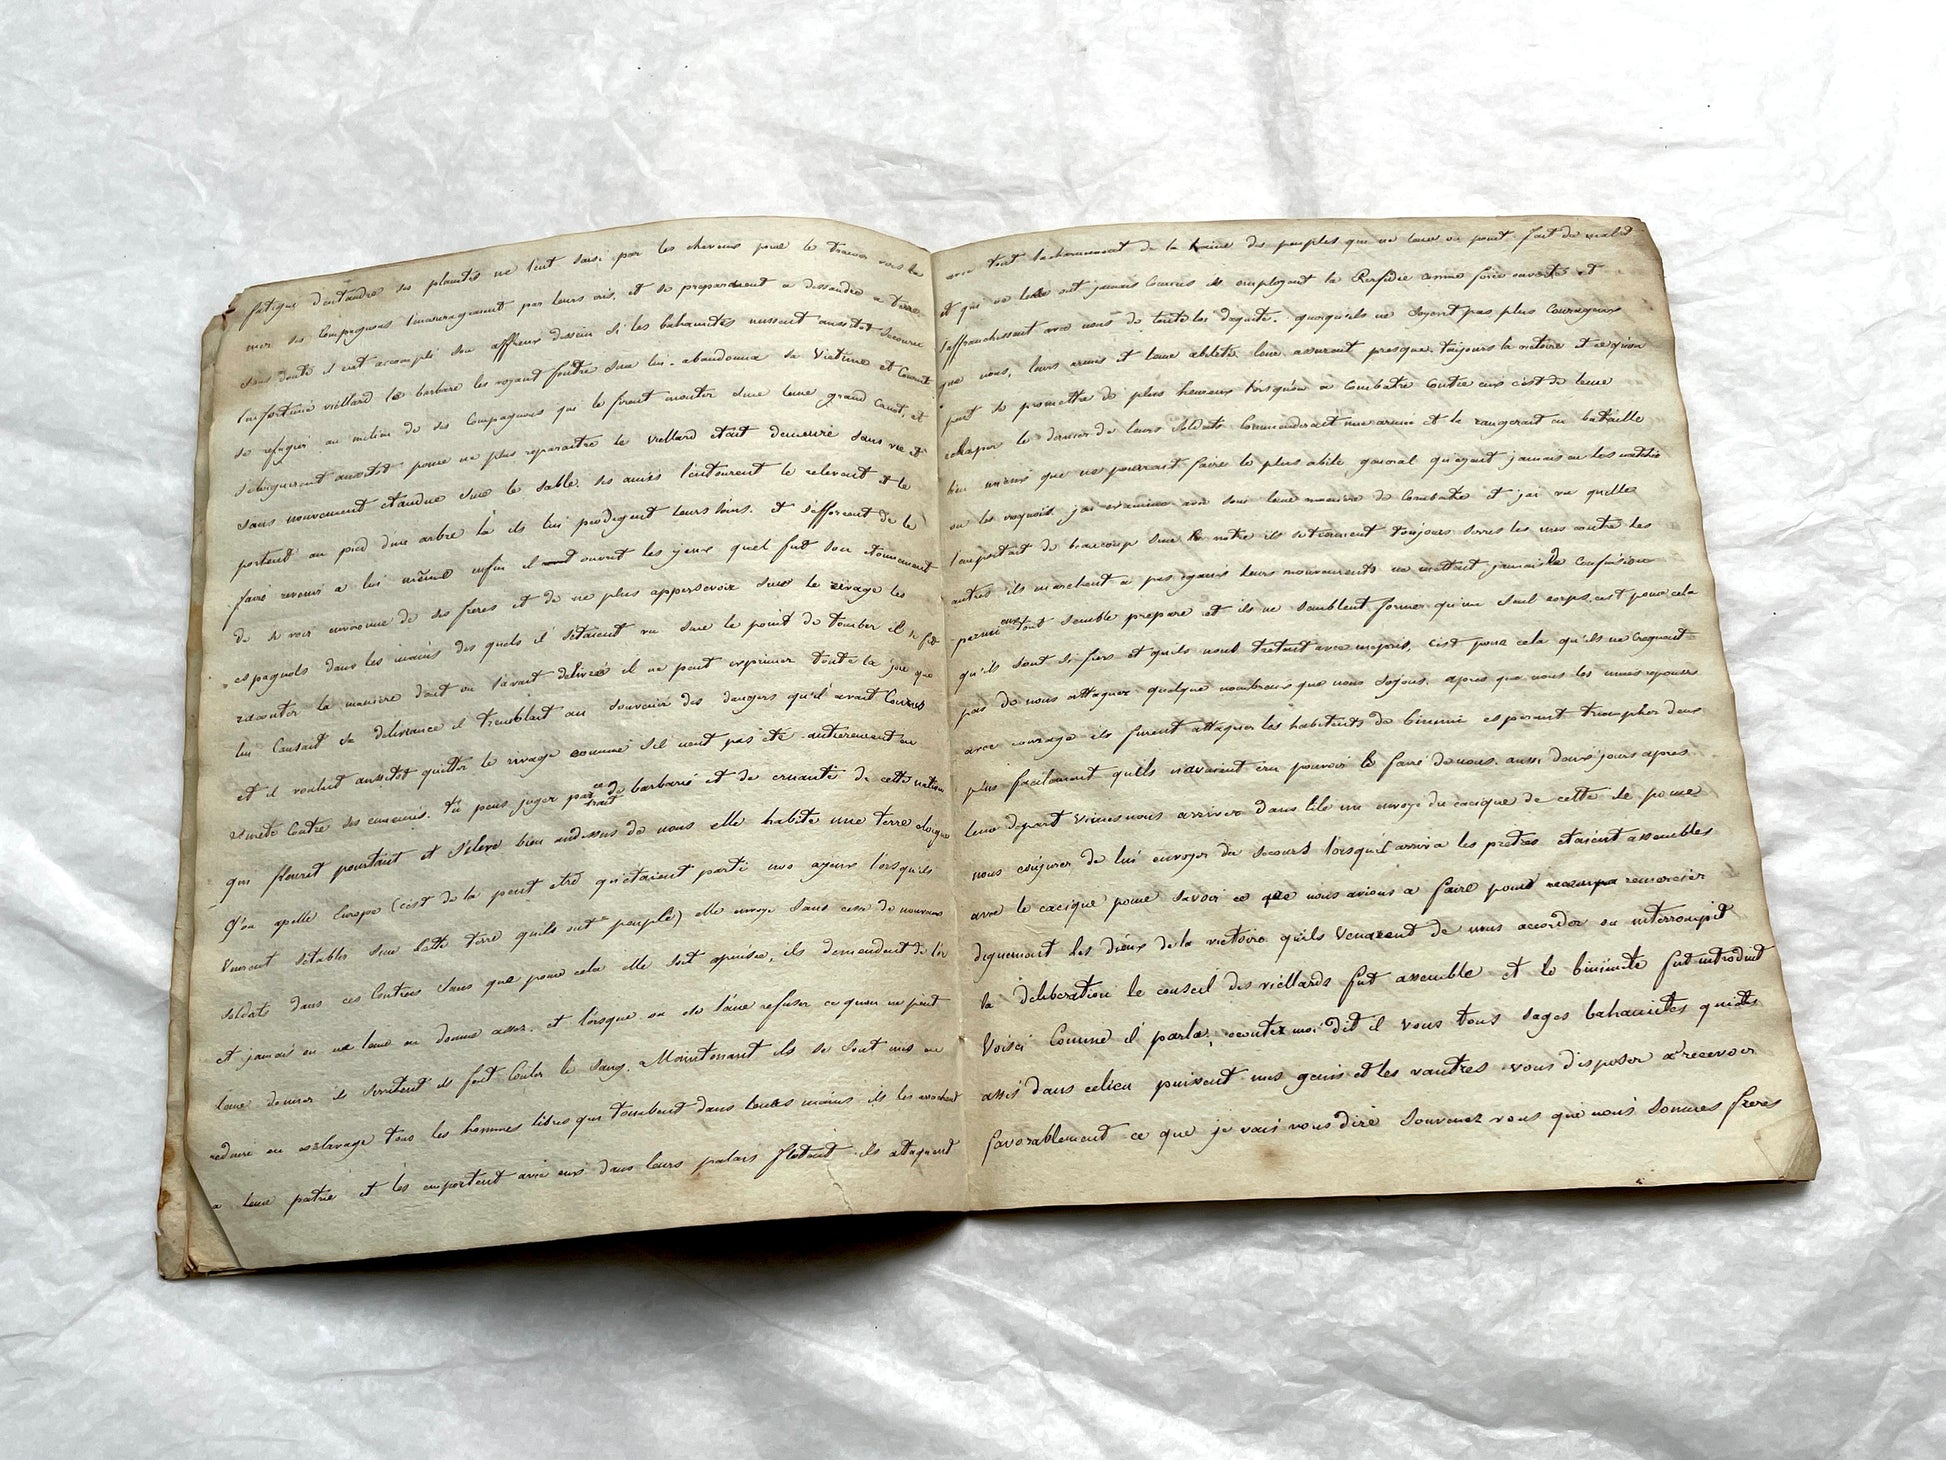 fatigué d'entandre ses plaintes ne l'eut saisi par les cheveux pour le trainer vers la
mer ses compagnons l'encourageaient par leurs cris, et se preparaient a dessandre a terre
sans doute il eut accompli son affreux dessein si les bahamites neussent aussitot secouru
l'infortuné viellard le barbare les voyant fondre sur lui abandonna sa victime et courut
se refugier au milieu de ses compagnons qui le firent monter sur leur grand canot, et
s'eloignerent aussitot pour ne plus reparaitre le viellard etait demeuré sans vie et
sans mouvement etandue sur le sable. ses amies l'entourent le relevent et le
portent au pied d'un arbre là ils lui prodigent leurs soins. et s'efforcent de le
faire revenir a lui même enfin il ouvrit les yeux quel fut son etonnement
de se voir environné de ses freres et de ne plus appersevoir sur le rivage les
espagnols dans les mains des quels il s'etaient vu sur le point de tomber il se fit
raconter la maniere dont on l'avait delivré il ne peut exprimer toute la joie que
lui causait sa delivrance il tremblait au souvenir des dangers qu'il avait courus
et il voulut aussitot quitter le rivage comme s'il neut pas été antierement en
sureté contre ses ennemis. tu peus juger par ce trait de barbarie et de cruauté de cette nation
qui fleurit pourtant et s'eleve bien audessus de nous elle habite une terre eloigné
q'on apelle Europe (c'est de la peut etre qu'etaient parti nos ayeux lorsqu'ils
vinrent setablir sur cette terre quils ont peuplé) elle envoye sans cesse de nouveaux
soldats dans ces contrées sans que pour cela elle soit apuisée, ils demendent de l'or
et jamais on ne leur en donne assez. et lorsque on ose leur refuser ce quon ne peut
leur donner ils s'irritent ils font couler le sang. Maintenant ils se sont mis a
reduire en esclavage tous les hommes libres qui tombent dans leurs mains ils les arrachent
a leur patrie et les emportent avec eux dans leurs palais flotant ils ataquent
avec tout lacharnement de la haine des peuples qui ne leur on point fait du mal
et qui ne leur ont jamais connus ils employent la Perfidie comme force ouverte et
s'affranchissent avec nous de toute loi d'equité. quoiqu'ils ne soyent pas plus courageux
que nous, leurs armes et leur abileté leur assurent presque toujours la victoire et ce qu'on
peut se promettre de plus heureux lorsqu'on a combatre contre eux c'est de leur
echaper le dernier de leurs soldats commanderait une armée et la rangerait en bataille
bien mieux que ne pourrait faire le plus abile general qu'ayent jamais eu les
ou les voyait. j'ai examiné avec soin leur maniere de combatre et j'ai vu quelle
l'emportait de beaucoup sur la notre ils se tiennent toujours serrés les uns contre les
autres ils marchent a pas egaux leurs mouvements ne mettent jamais de confusion
parmi eux tout semble preparé et ils ne semblent former qu'un seul corps. c'est pour cela
qu'ils sont si fiers et qu'ils nous tretent avec mepris, c'est pour cela qu'ils ne craignent
pas de nous attaquer quelque nombreux que nous soyons. apres que nous les eumes repoussés
avec courage ils furent attaquer les habitents de bimini esperant triompher deux
plus facilement quils n'avaient cru pouvoir le faire de nous. aussi deux jours apres
leur depart vimes nous arriver dans l'ile un envoyé du cacique de cette ile pour
nous conjurer de lui envoyer du secours lorsqu'il arriva les pretres etaient assemblés
avec le cacique pour savoir ce que nous avions a faire pour remercier
dignement les dieux de la victoire qu'ils venaient de nous accorder on interrompit
la deliberation le conseil des viellards fut assemblé et le biminite fut introduit
Voisi comme il parla; ecoutez moi dit il vous tous sages bahamites qui etes
assis dans celieu puissent mes genis et les vautres vous disposer a recevoir
favorablement ce que je vais vous dire souvenez vous que nous sommes freres